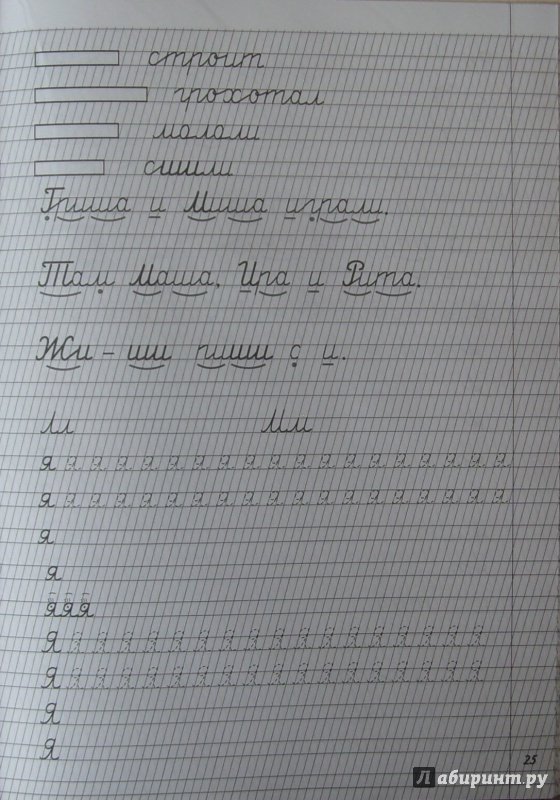 строит
грохотал
сшили
Гриша и Миша играли.
Там Маша, Ира и Рита.
Жи – ши пиши с и.
Лл Мм
я я я я я я я я я я я я я я я я я я я
я я я я я я я я я я я я я я я я я я я
я
я
яяя
Я Я Я Я Я Я Я Я Я Я Я Я Я Я Я Я Я Я
Я Я Я Я Я Я Я Я Я Я Я Я Я Я Я Я Я Я
Я
Я
25
Лабиринт.ру